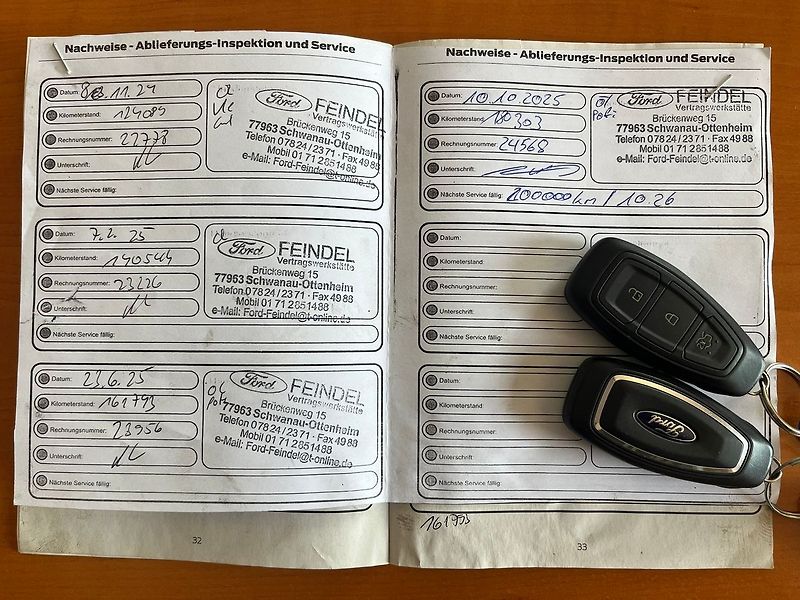 Nachweise - Ablieferungs-Inspektion und Service
Datum: 11.24
Kilometerstand: 124089
Rechnungsnummer: 22778
Unterschrift:
Nächste Service fällig:
Öl
Ford FEINDEL
Vertragswerkstätte
Brückenweg 15
77963 Schwanau-Ottenheim
Telefon 07824/2371 · Fax 4988
Mobil 01 71 2851488
e-Mail: Ford-Feindel@t-online.de
Datum: 7.2. 25
Kilometerstand: 140544
Rechnungsnummer: 23226
Unterschrift:
Nächste Service fällig:
Öl
Ford FEINDEL
Vertragswerkstätte
Brückenweg 15
77963 Schwanau-Ottenheim
Telefon 07824/2371 · Fax 4988
Mobil 01 71 2851488
e-Mail: Ford-Feindel@t-online.de
Datum: 23.6.25
Kilometerstand: 161793
Rechnungsnummer: 23956
Unterschrift:
Nächste Service fällig:
Öl
Poll
Ford FEINDEL
Vertragswerkstätte
Brückenweg 15
77963 Schwanau-Ottenheim
Telefon 07824/2371 · Fax 4988
Mobil 01 71 2851488
e-Mail: Ford-Feindel@t-online.de
32
Nachweise - Ablieferungs-Inspektion und Service
Datum: 10.10.2025
Kilometerstand: 180303
Rechnungsnummer: 24568
Unterschrift:
Nächste Service fällig: 200000km / 10.26
Öl
Poll
Ford FEINDEL
Vertragswerkstätte
Brückenweg 15
77963 Schwanau-Ottenheim
Telefon 07824/2371 · Fax 4988
Mobil 01 71 2851488
e-Mail: Ford-Feindel@t-online.de
Datum:
Kilometerstand
Rechnungsnummer:
Unterschrift:
Nächste Service fällig:
Datum:
Kilometerstand:
Rechnungsnummer:
Unterschrift:
Nächste Service fällig:
Ford
161793
33